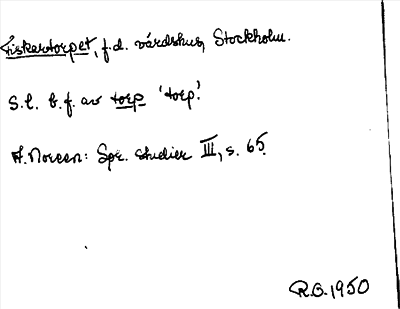 Fiskartorpet, f.d. värdshus, Stockholm.
S.l. b.f. av torp 'torp'.
A. Noreen: Spr. studier III, s. 65.
R.O. 1950